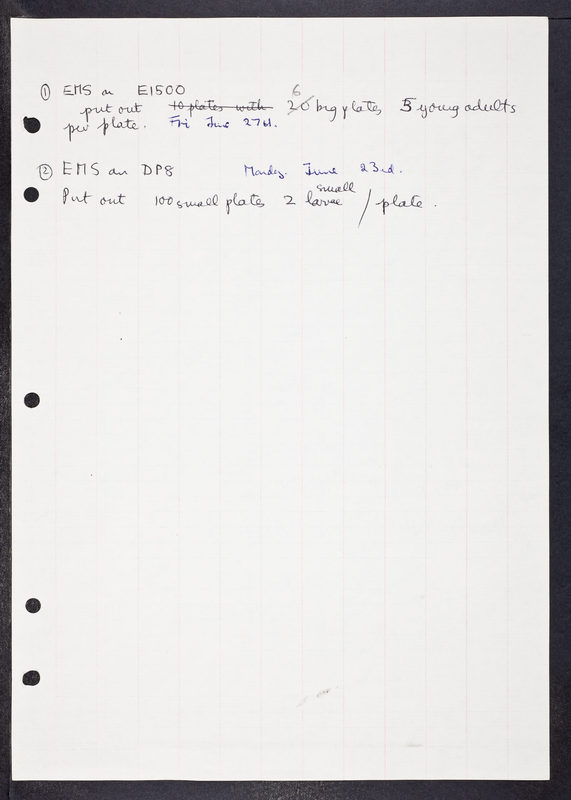 ① EMS on E1500
6
put out 10 plates with 20 big plates 5 young adults
per plate. Fri June 27th.
② EMS on DP8 Monday June 23rd.
small
Put out 100 small plates 2 larvae / plate.